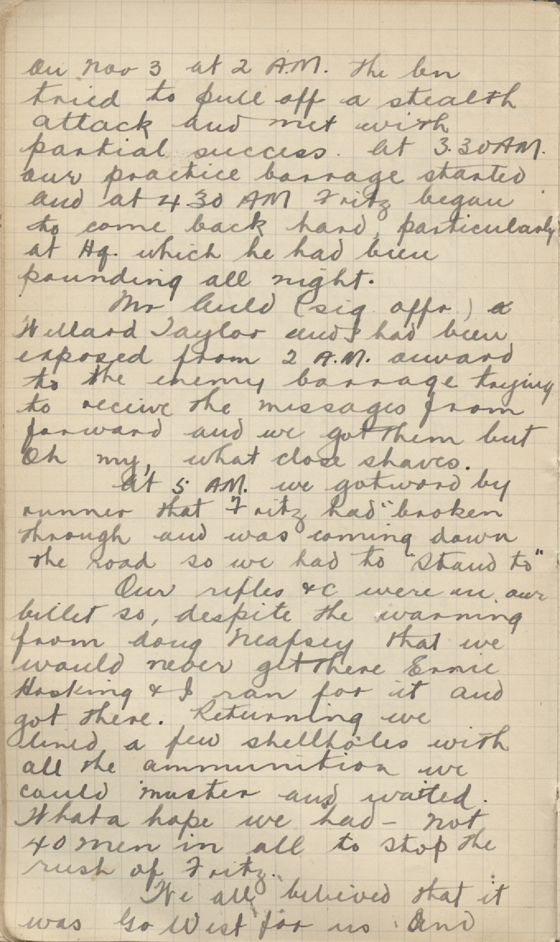 On Nov 3 at 2 A.M. the bn
tried to pull off a stealth
attack and met with
partial success. At 3.30 A.M.
our practice barrage started
and at 4.30 AM Fritz began
to come back hard, particularly
at Hq. which he had been
pounding all night.
Mr Auld (sig offr) &
Willard Taylor and I had been
exposed from 2 A.M. onward
to the enemy barrage trying
to receive the messages from
forward and we got them but
Oh my, what close shaves.
At 5 AM. we got word by
runner that Fritz had "broken
through and was coming down
the road so we had to "Stand to"
Our rifles &c were in our
billet so, despite the warning
from doug Neafsey that we
would never get there Ernie
Hosking & I ran for it and
got there. Returning we
lined a few shellholes with
all the ammunition we
could muster and waited.
What a hope we had - not
40 men in all to stop the
rush of Fritz.
We all believed that it
was Go West for us And